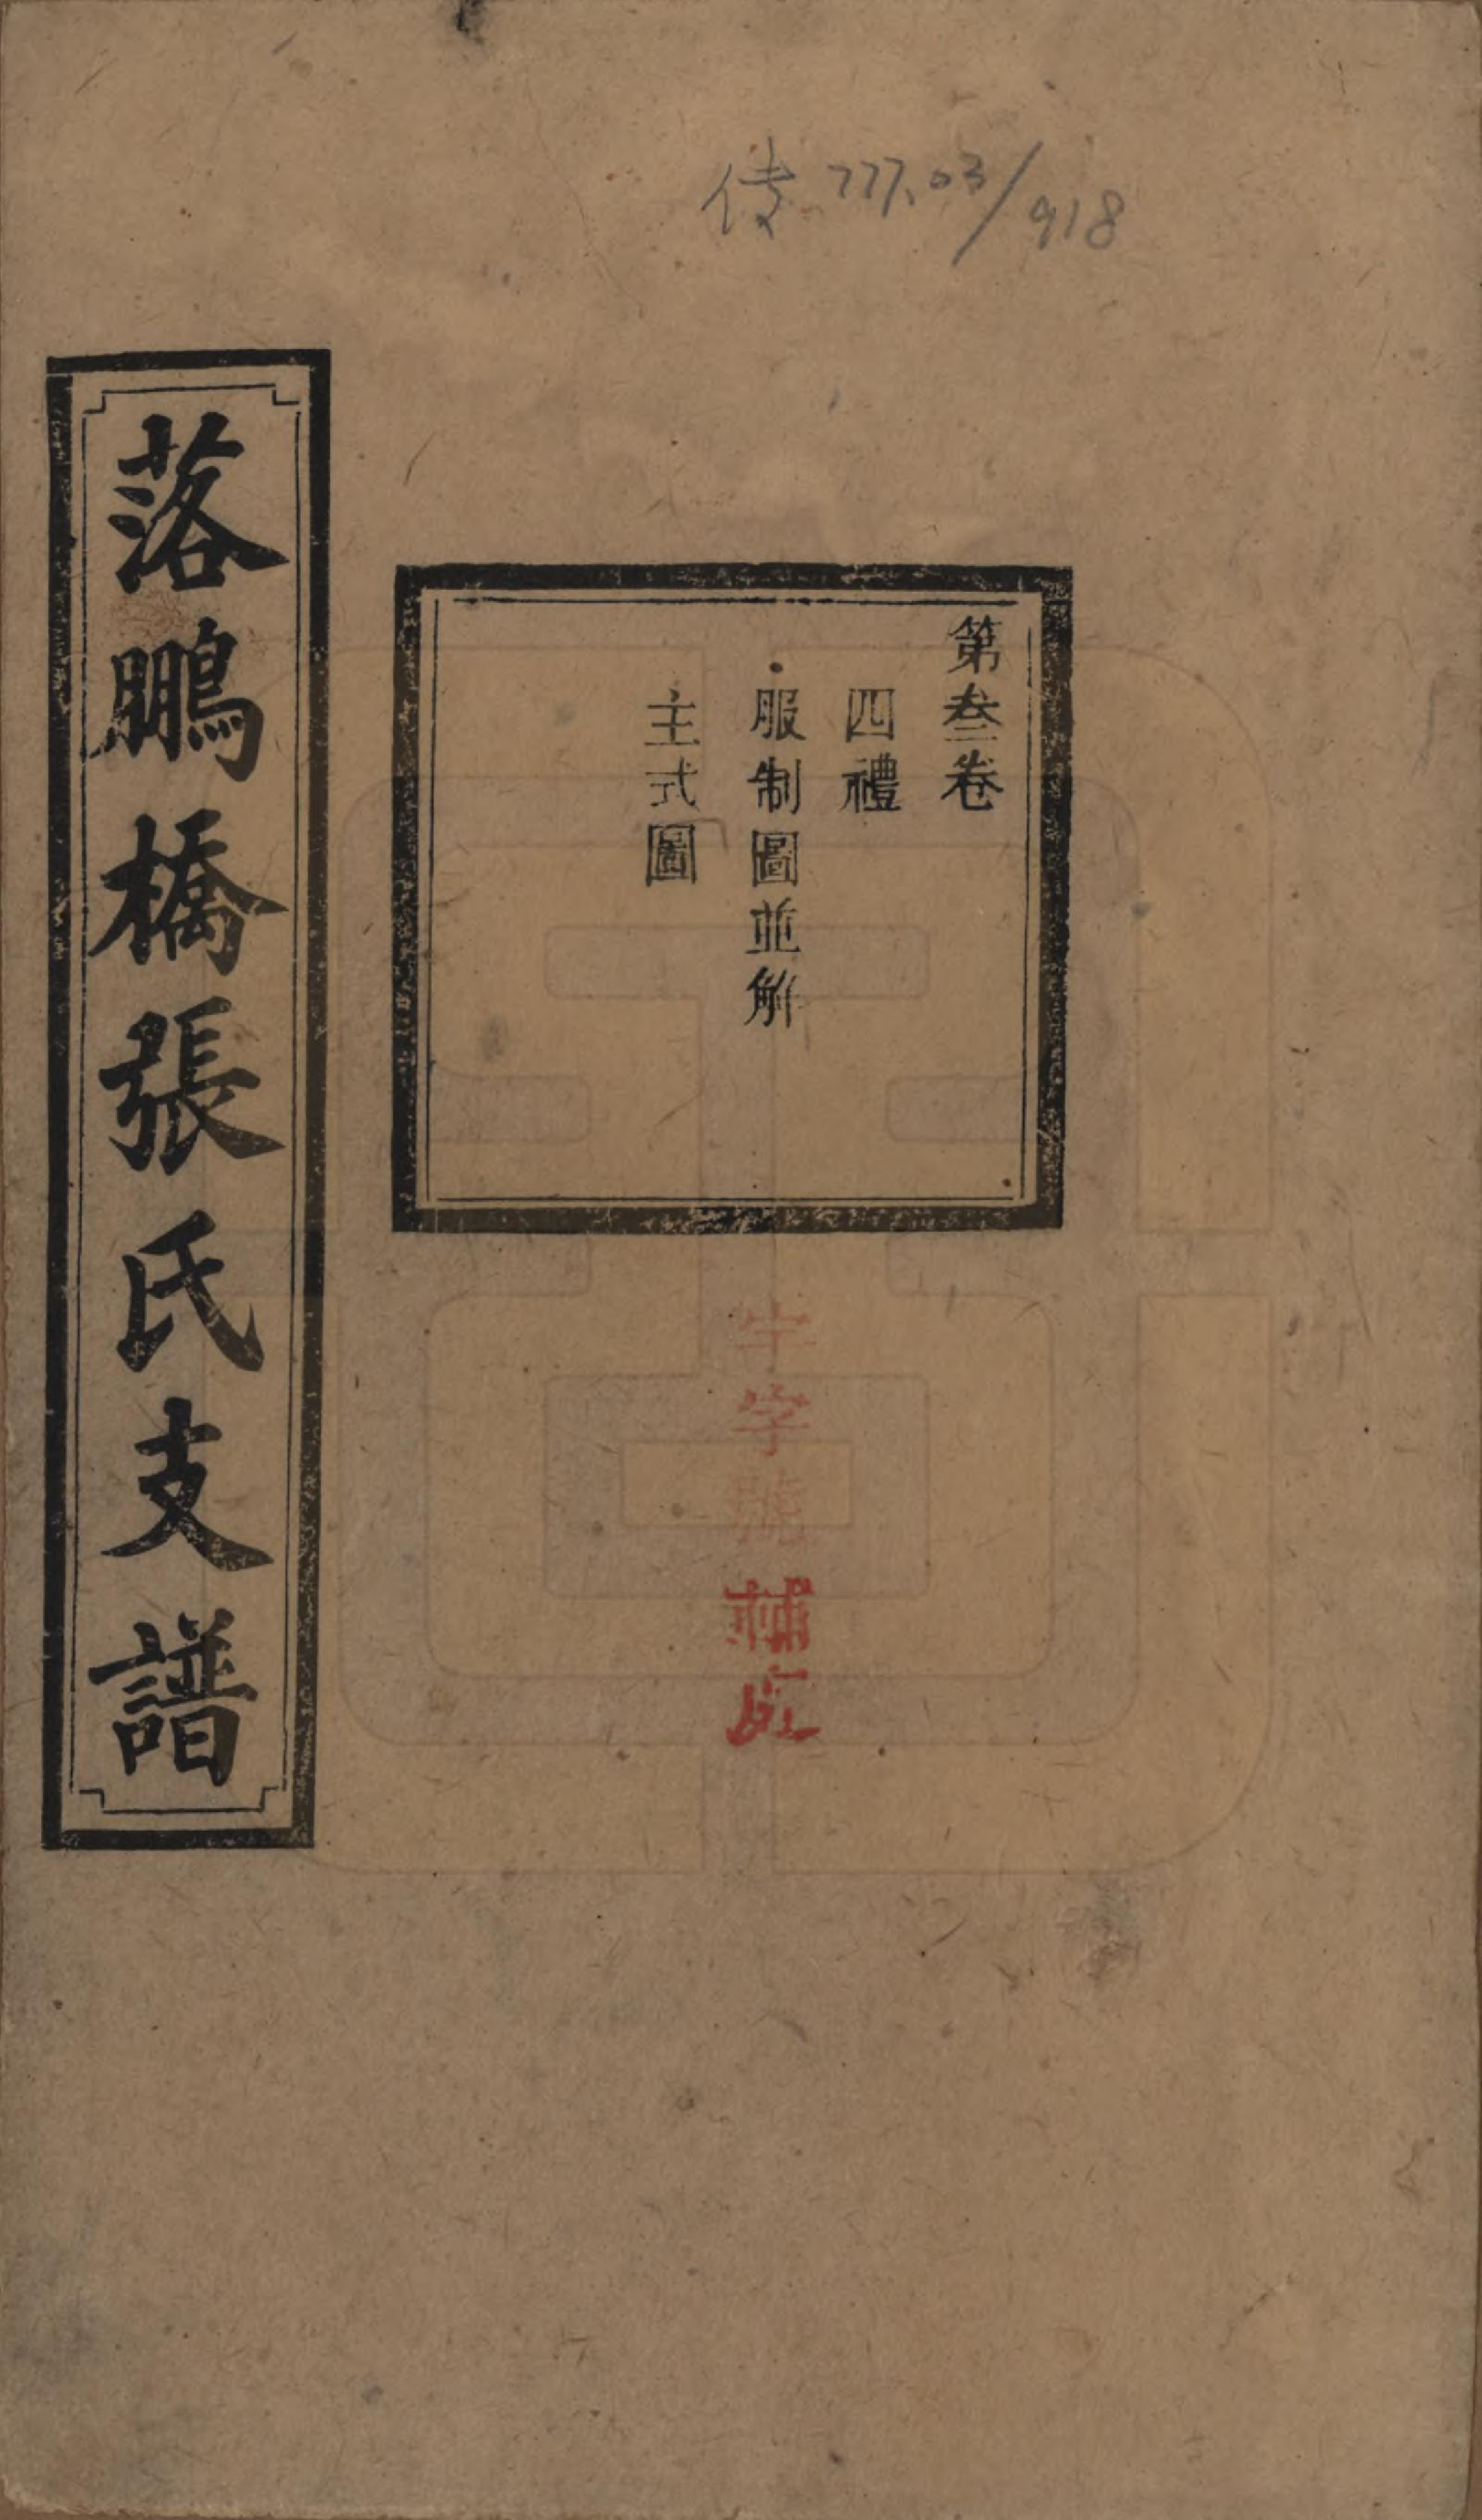 傳 777.03/918
第叁卷
四禮
服制圖並解
主式圖
落鵬橋張氏支譜
字號